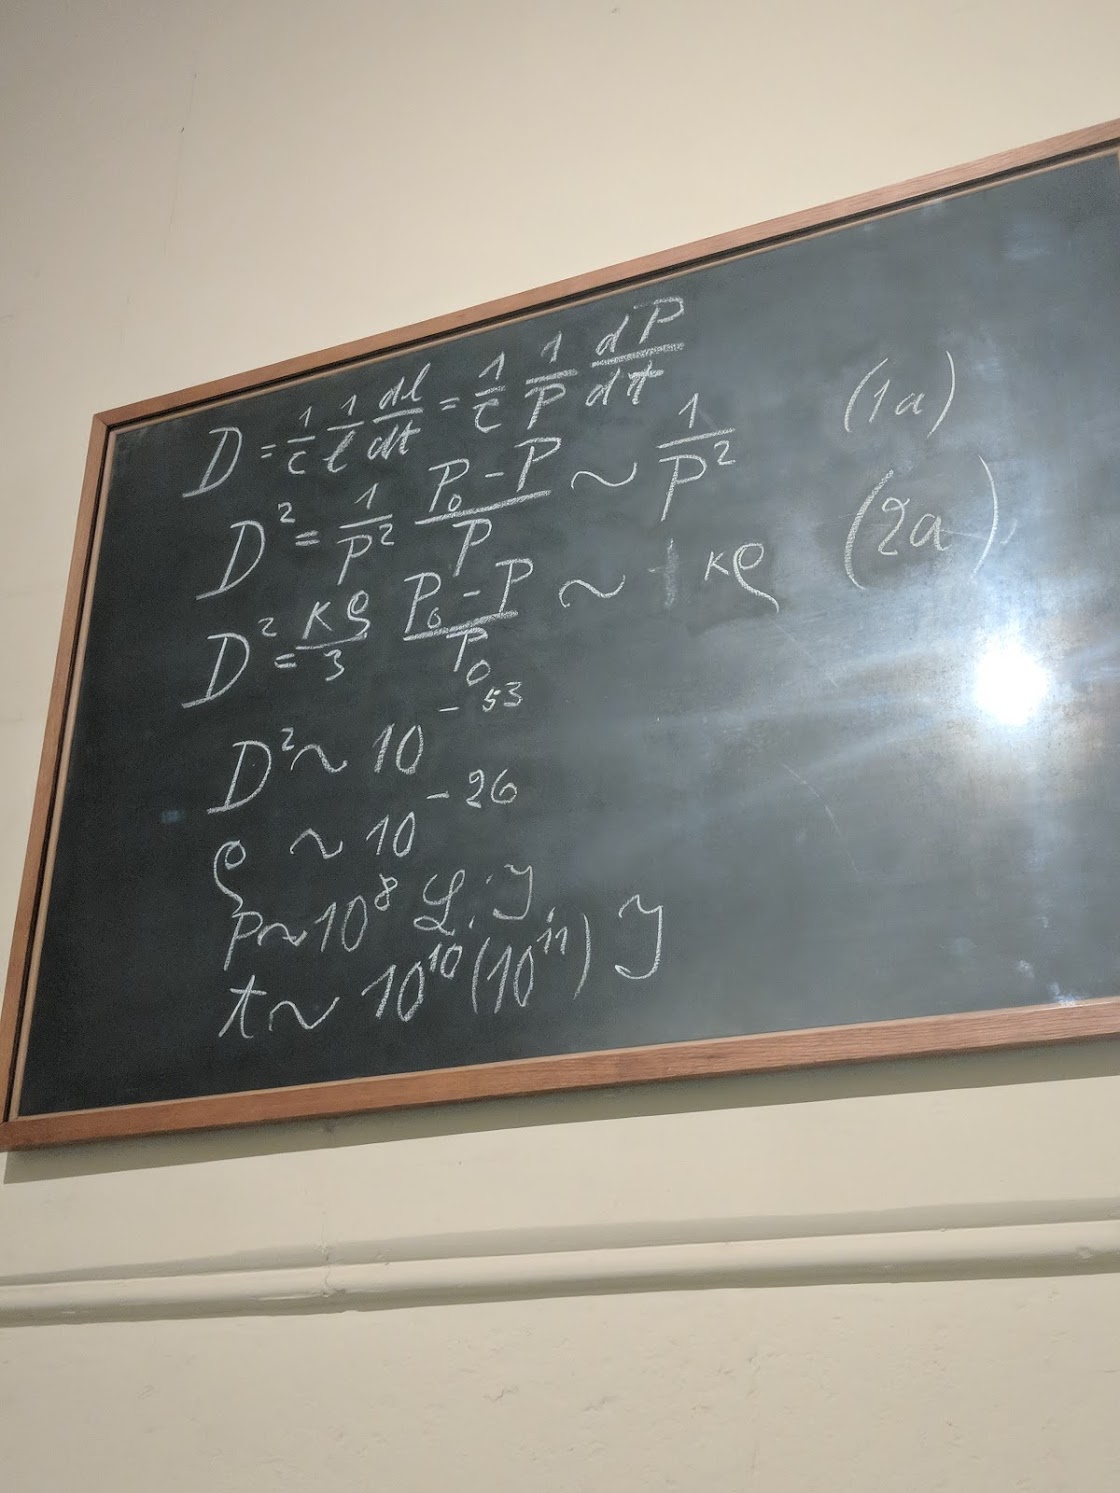 D = 1/c 1/l dl/dt = 1/c 1/P dP/dt (1a)
D² = 1/P² P₀-P/P ~ 1/P² (2a)
D² = κρ/3 P₀-P/P₀ ~ κρ
D² ~ 10⁻⁵³
ρ ~ 10⁻²⁶
P ~ 10⁸ L.J.
t ~ 10¹⁰(10¹¹) J